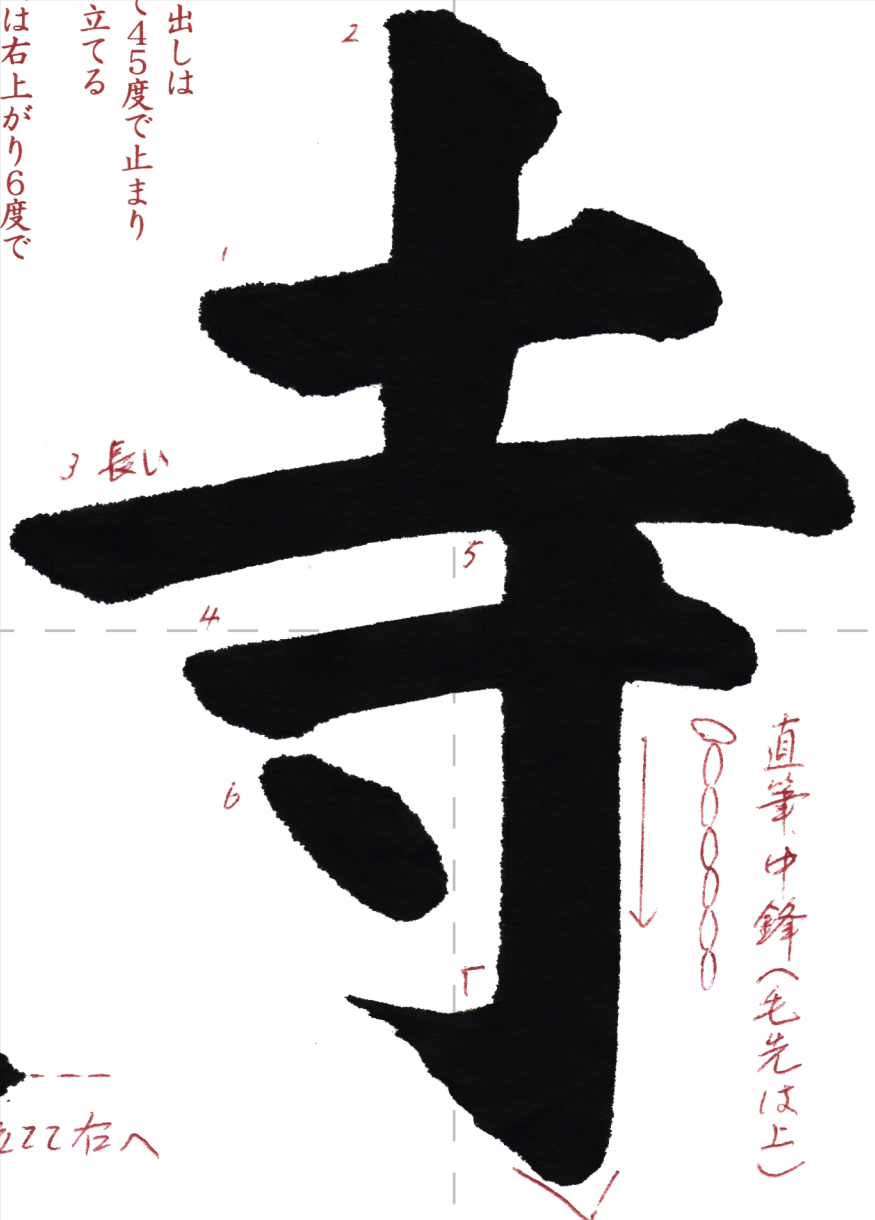 寺
出しは
て45度で止まり
立てる
は右上がり6度で
1
2
3 長い
4
5
6
直筆中鋒(毛先は上)
立てて右へ